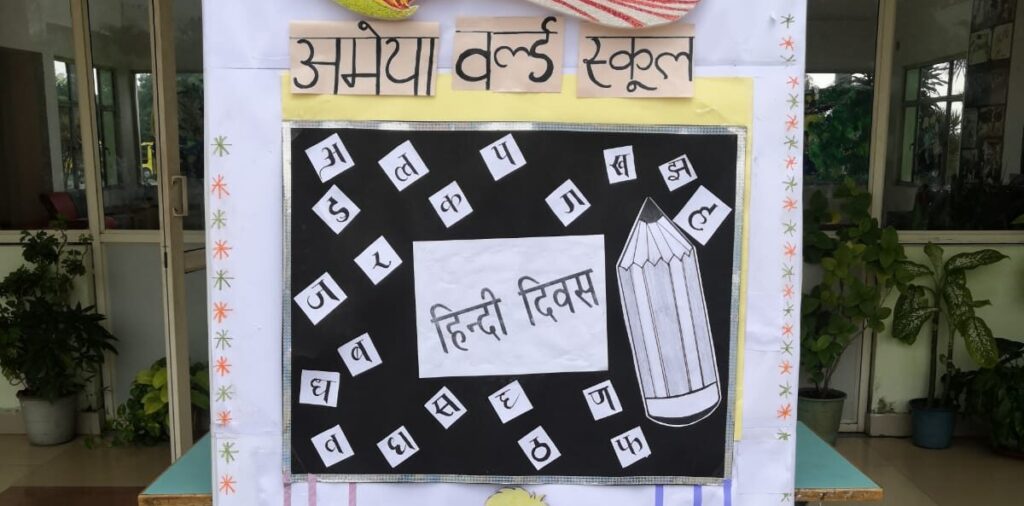 अमेया वर्ल्ड स्कूल
अ त्त प ख झ
ड क ज ह
र
ज
हिन्दी दिवस
ब
घ स द ण
व ध ठ फ